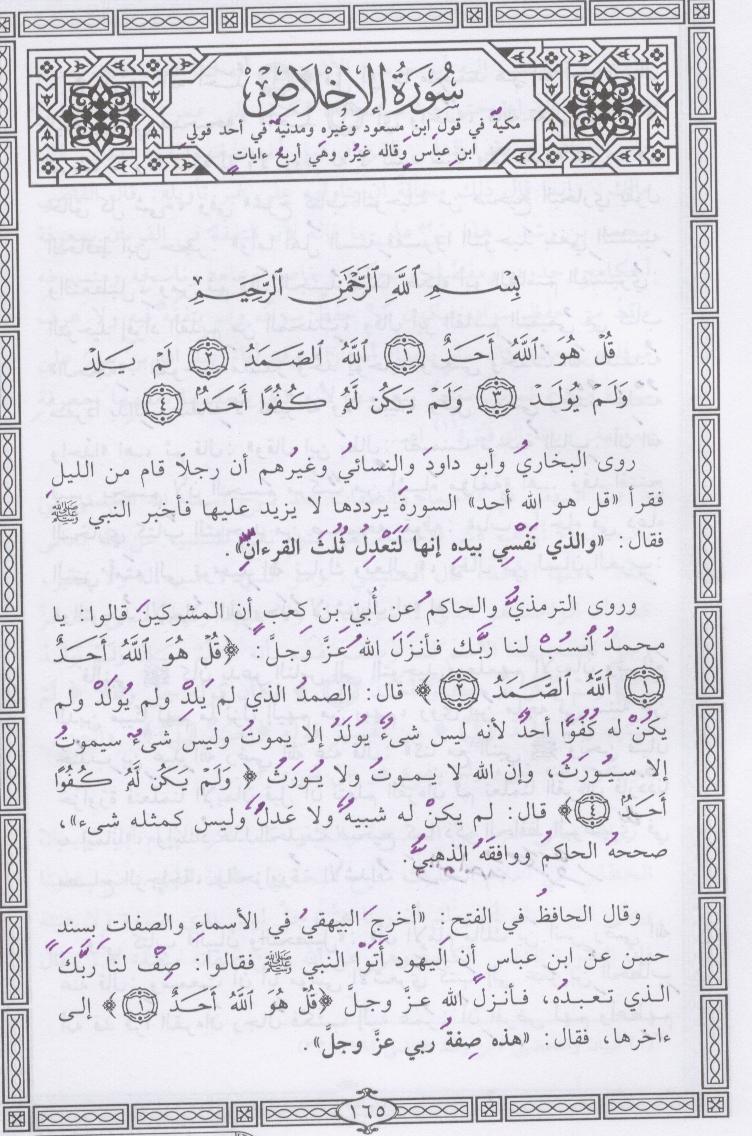 سُورَةُ الإِخْلَاصِ
مكيةٌ في قول ابن مسعود وغيرِه ومدنيةٌ في أحد قولي
ابنِ عباسٍ وقاله غيرُه وهي أربعُ ءاياتٍ
بِسْمِ ٱللَّهِ ٱلرَّحْمَٰنِ ٱلرَّحِيمِ
قُلْ هُوَ ٱللَّهُ أَحَدٌ ﴿١﴾ ٱللَّهُ ٱلصَّمَدُ ﴿٢﴾ لَمْ يَلِدْ
وَلَمْ يُولَدْ ﴿٣﴾ وَلَمْ يَكُن لَّهُۥ كُفُوًا أَحَدٌۢ ﴿٤﴾
روى البخاريُّ وأبو داودَ والنسائيُّ وغيرُهم أن رجلًا قام من الليلِ
فقرأ «قل هو الله أحد» السورةَ يرددها لا يزيد عليها فأخبر النبي ﷺ
فقال: «والذي نَفْسِي بيدِه إنها لَتَعْدِلُ ثُلُثَ القرءانِ».
وروى الترمذيُّ والحاكم عن أُبيّ بن كعب أن المشركينَ قالوا: يا
محمدُ ٱنْسُبْ لنا ربَّك فأنزَلَ اللهُ عَزَّ وَجلَّ: ﴿قُلْ هُوَ ٱللَّهُ أَحَدٌ
﴿١﴾ ٱللَّهُ ٱلصَّمَدُ ﴿٢﴾﴾ قال: الصمدُ الذي لم يَلِدْ ولم يُولَدْ ولم
يكُنْ له كُفُوًا أحدٌ لأنه ليس شىءٌ يُولَدُ إلا يموتُ وليس شىءٌ سيموتُ
إلا سيُورَثُ، وإن الله لا يموتُ ولا يُورَثُ ﴿وَلَمْ يَكُن لَّهُۥ كُفُوًا
أَحَدٌۢ ﴿٤﴾﴾ قال: لم يكنْ له شبيهٌ ولا عدلٌ وليس كمثله شىء»،
صححهُ الحاكم ووافقهُ الذهبيُّ.
وقال الحافظُ في الفتح: «أخرج البيهقيُّ في الأسماءِ والصفات بسند
حسن عن ابن عباس أن اليهود أَتَوْا النبي ﷺ فقالوا: صِفْ لنا ربَّكَ
الذي تعبدُه، فأنزلَ الله عز وجل ﴿قُلْ هُوَ ٱللَّهُ أَحَدٌ ﴿١﴾﴾ إلى
ءاخرها، فقال: «هذه صِفةُ ربي عزَّ وجلَّ».
١٦٥